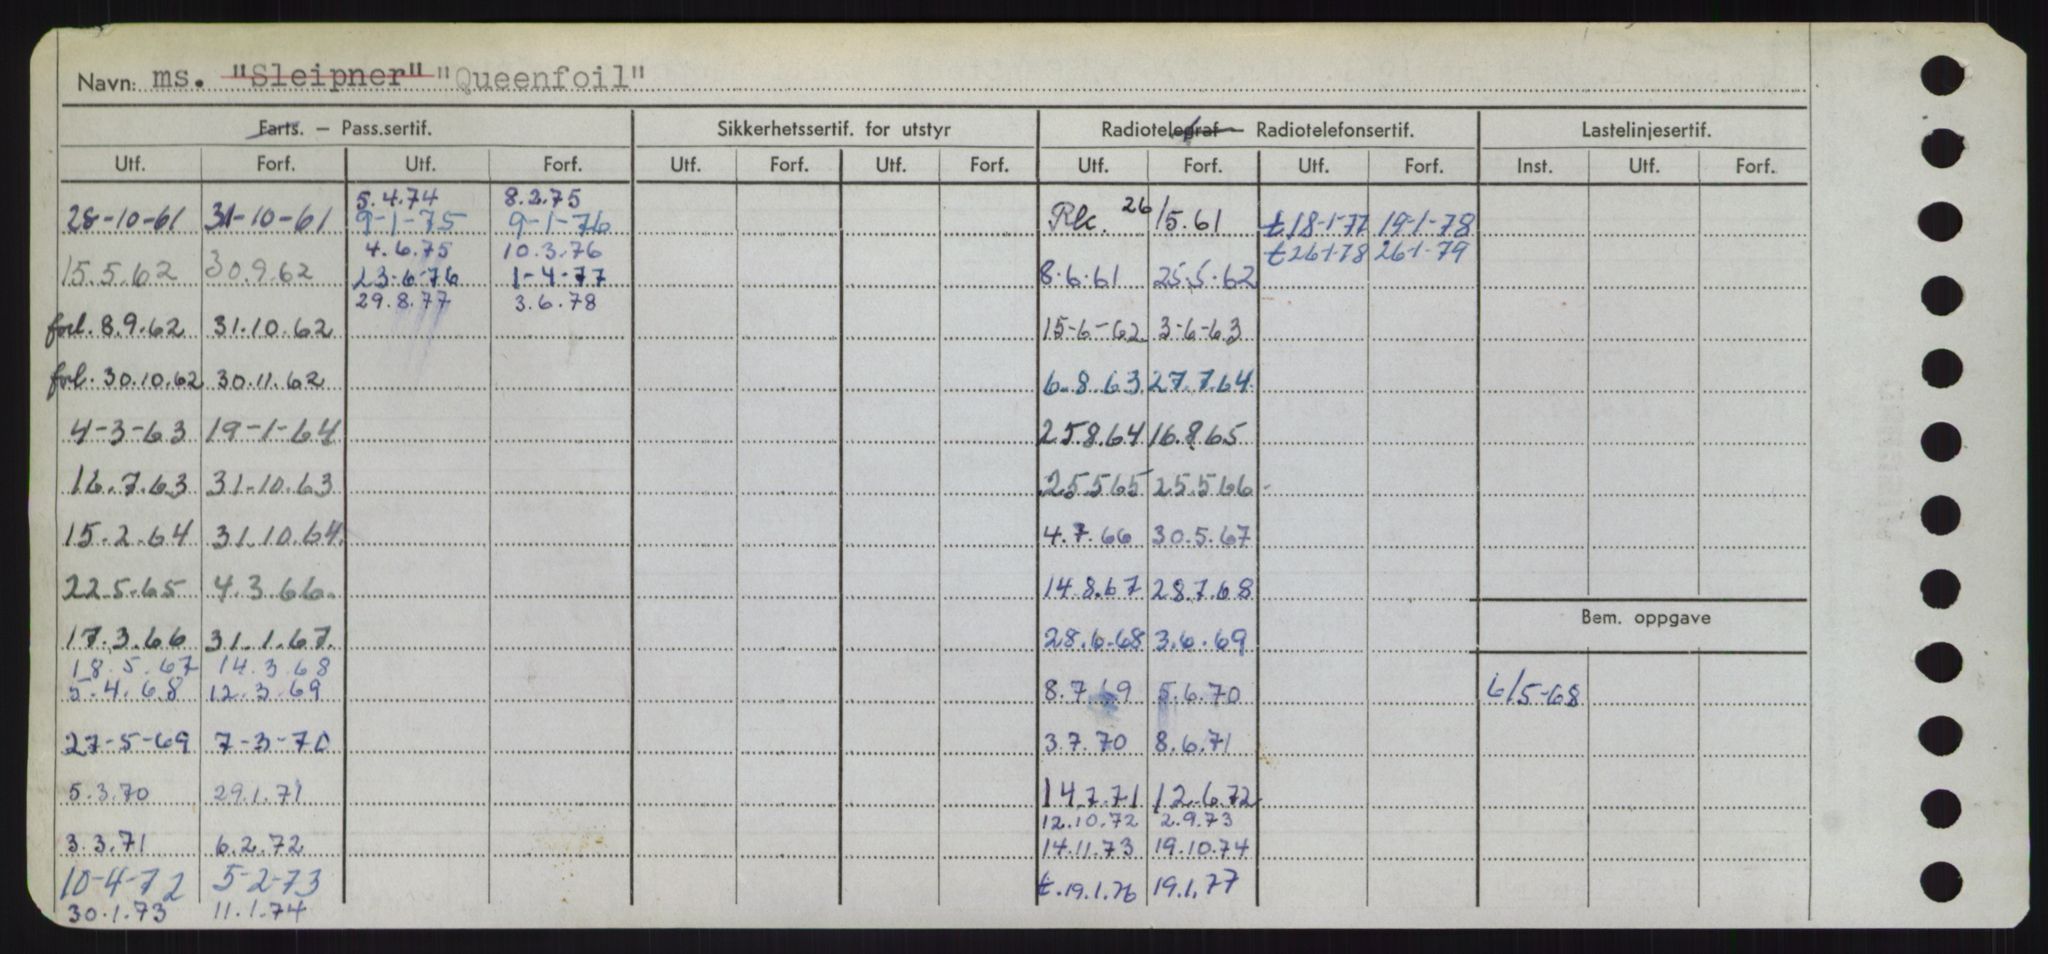 Navn: ms. "Sleipner" "Queenfoil"
Farts. – Pass.sertif. Sikkerhetssertif. for utstyr Radiotelegraf – Radiotelefonsertif. Lastelinjesertif.
Utf. Forf. Utf. Forf. Utf. Forf. Utf. Forf. Utf. Forf. Utf. Forf. Inst. Utf. Forf.
5.4.74 8.2.75
28-10-61 31-10-61 9-1-75 9-1-76 Rk. 26/5.61 t18-1-77 19-1-78
4.6.75 10.3.76 t26-1-78 26-1-79
15.5.62 30.9.62 23-6-76 1-4-77 8.6.61 25.5.62
29.8.77 3.6.78
forl. 8.9.62 31.10.62 15-6-62 3-6-63
forl. 30.10.62 30.11.62 6.8.63 27.7.64
4-3-63 19-1-64 25.8.64 16.8.65
16.7.63 31-10.63 25.5.65 25.5.66
15.2.64 31.10.64. 4.7.66 30.5.67
22.5.65 4.3.66. 14.8.67 28.7.68
Bem. oppgave
17.3.66 31.1.67. 28.6.68 3.6.69
18.5.67 14.3.68
5.4.68 12.3.69 8.7.69 5.6.70 6/5-68
27-5-69 7-3-70 3.7.70 8.6.71
5.3.70 29.1.71 14.7.71 12.6.72
12.10.72 2.9.73
3.3.71 6.2.72 14.11.73 19.10.74
10-4-72 5-2-73 t.19.1.76 19.1.77
30.1.73 11.1.74